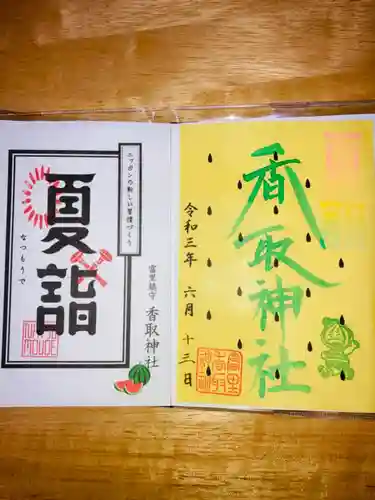 香取神社
令和三年 六月 十三日
ニッポンの新しい習慣づくり
夏詣
なつもうで
富里鎮守 香取神社